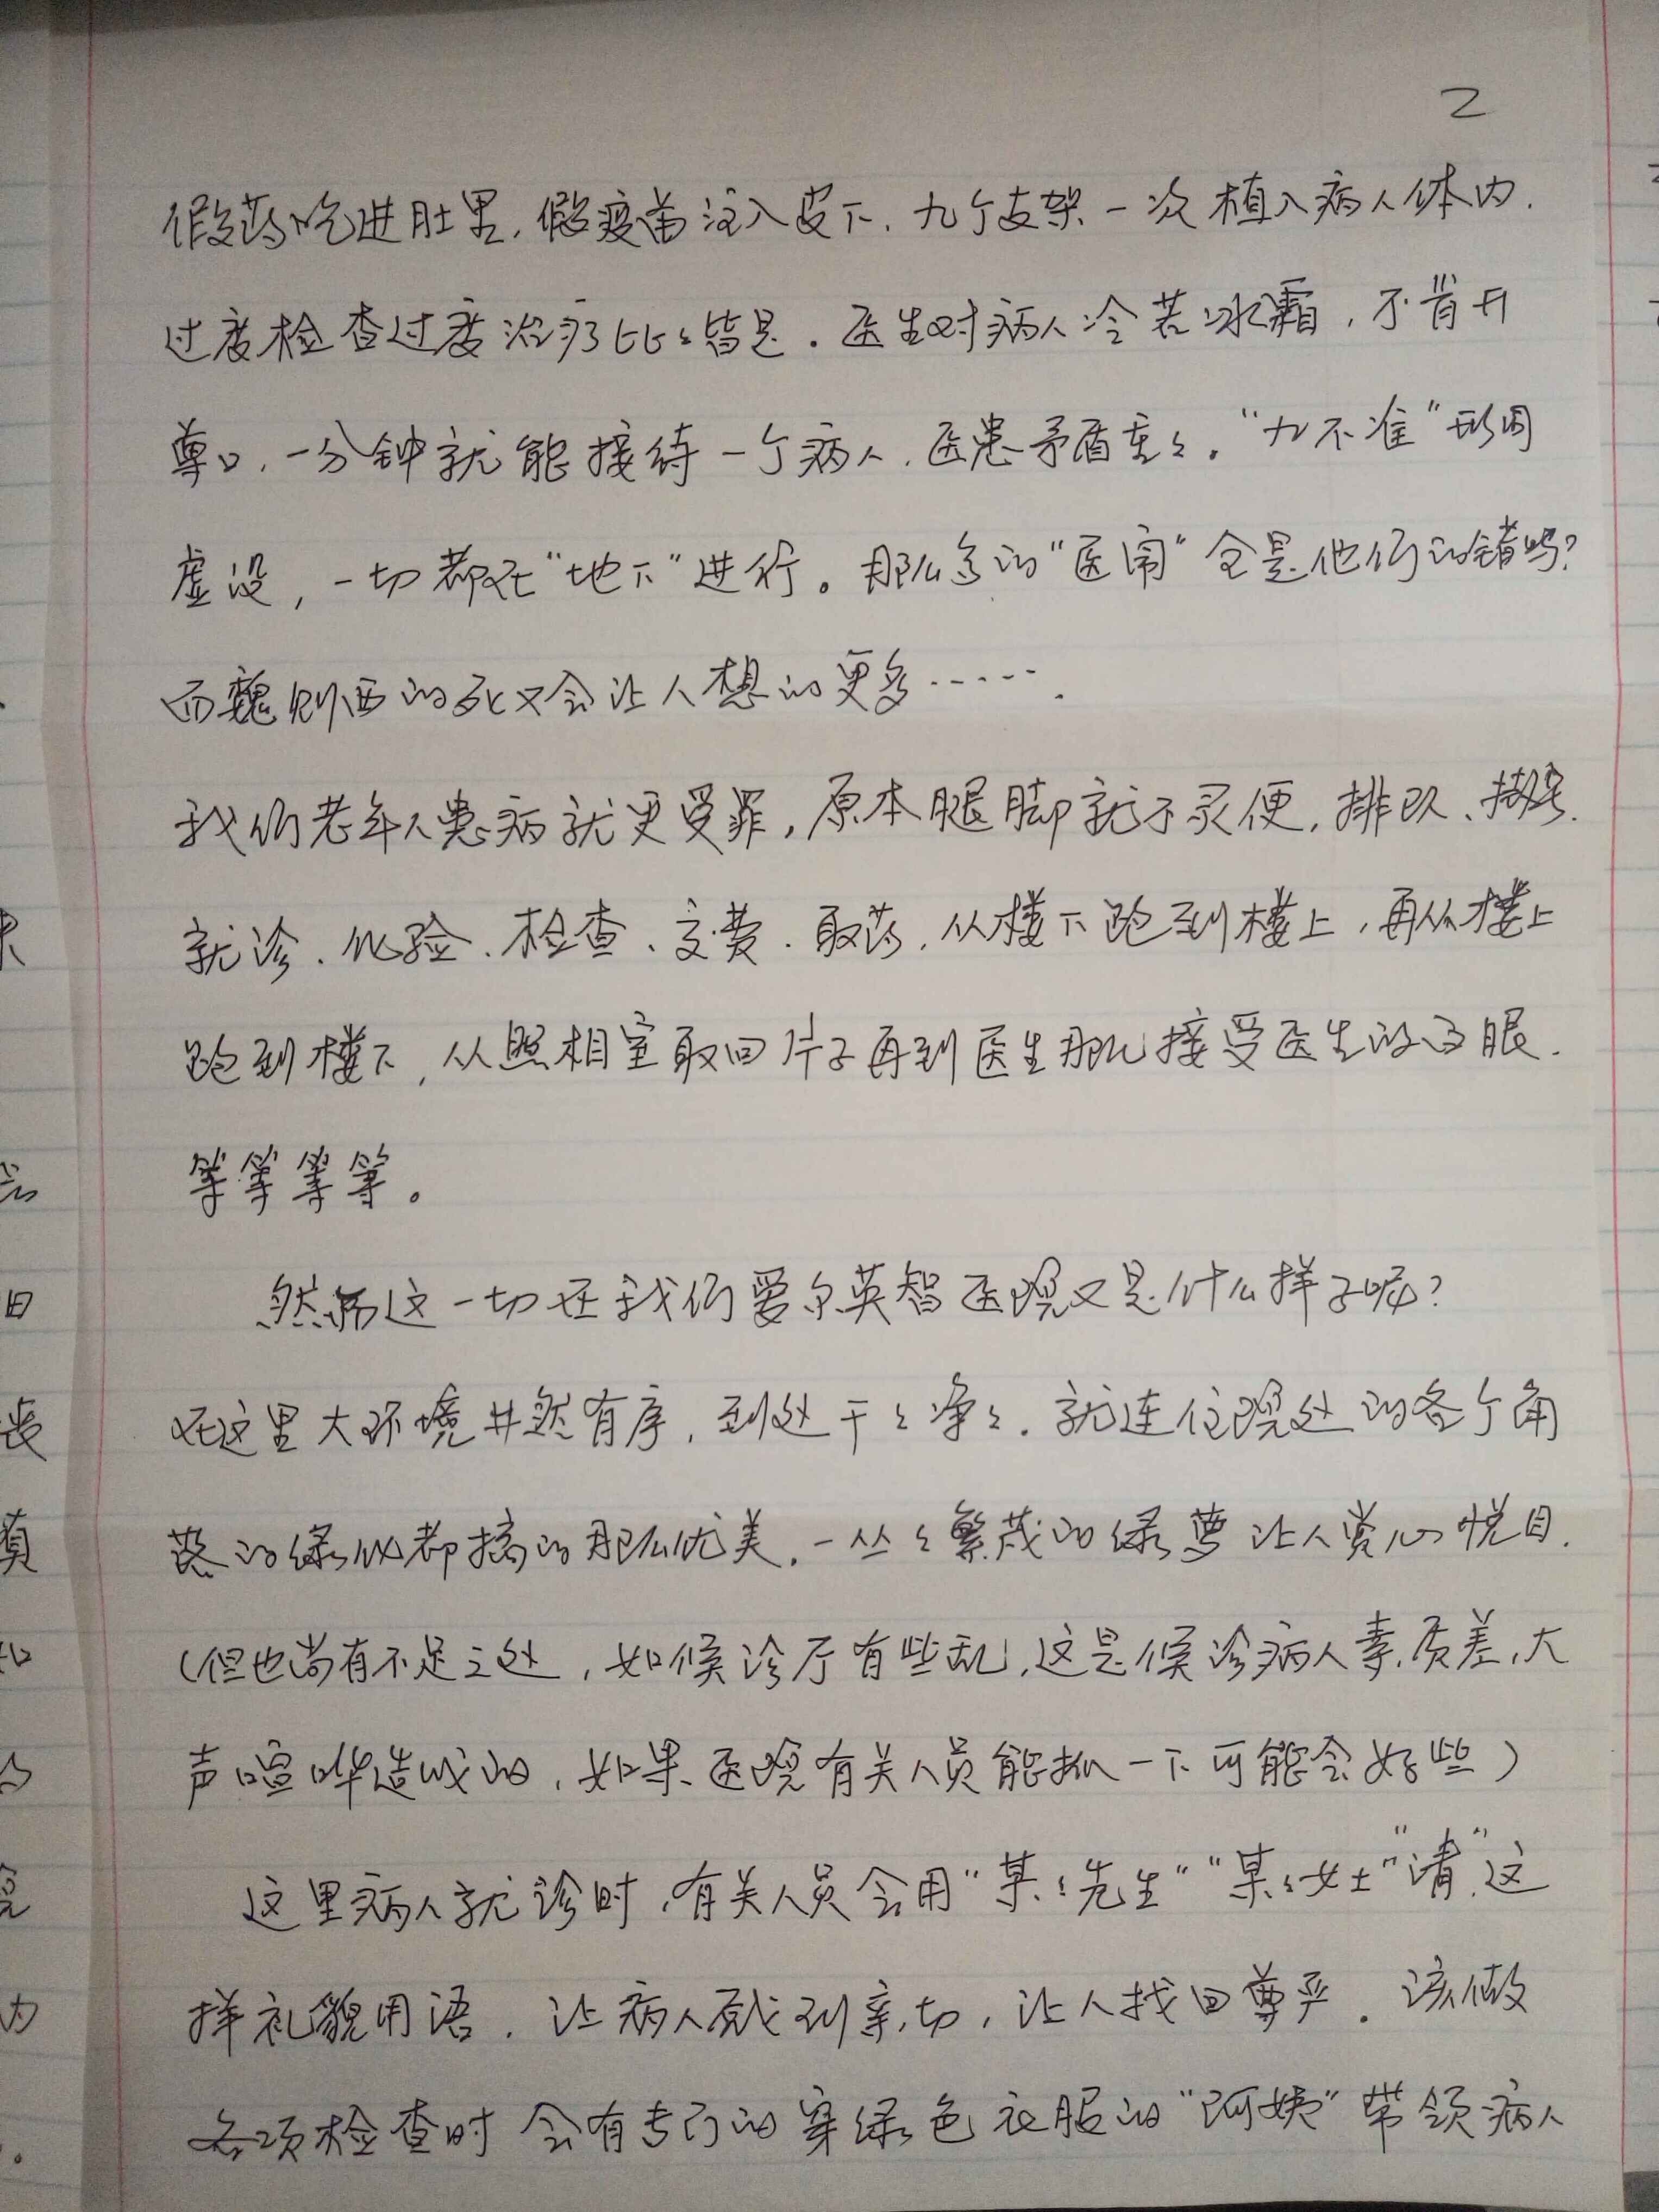 2
假药吃进肚里,假疫苗注入皮下,九个支架一次植入病人体内.
过度检查过度治疗比々皆是.医生对病人冷若冰霜,不肯开
尊口,一分钟就能接待一个病人,医患矛盾重々."九不准"形同
虚设,一切都在"地下"进行。那么多的"医闹"全是他们的错吗?
而魏则西的死又会让人想的更多…….
我们老年人患病就更受罪,原本腿脚就不灵便,排队、挂号.
就诊、化验、检查、交费.取药,从楼下跑到楼上,再从楼上
跑到楼下,从照相室取回片子再到医生那儿接受医生的白眼.
等等等等。
然而这一切在我们爱尔英智医院又是什么样子呢?
在这里大环境井然有序,到处干々净々.就连住院处的各个角
落的绿化都搞的那么优美,一丛々繁茂的绿萝让人赏心悦目.
(但也尚有不足之处,如候诊厅有些乱,这是候诊病人素质差,大
声喧哗造成的,如果医院有关人员能抓一下可能会好些)
这里病人就诊时,有关人员会用"某々先生""某々女士""请"这
样礼貌用语,让病人感到亲切,让人找回尊严.该做
各项检查时会有专门的穿绿色衣服的"阿姨"带领病人